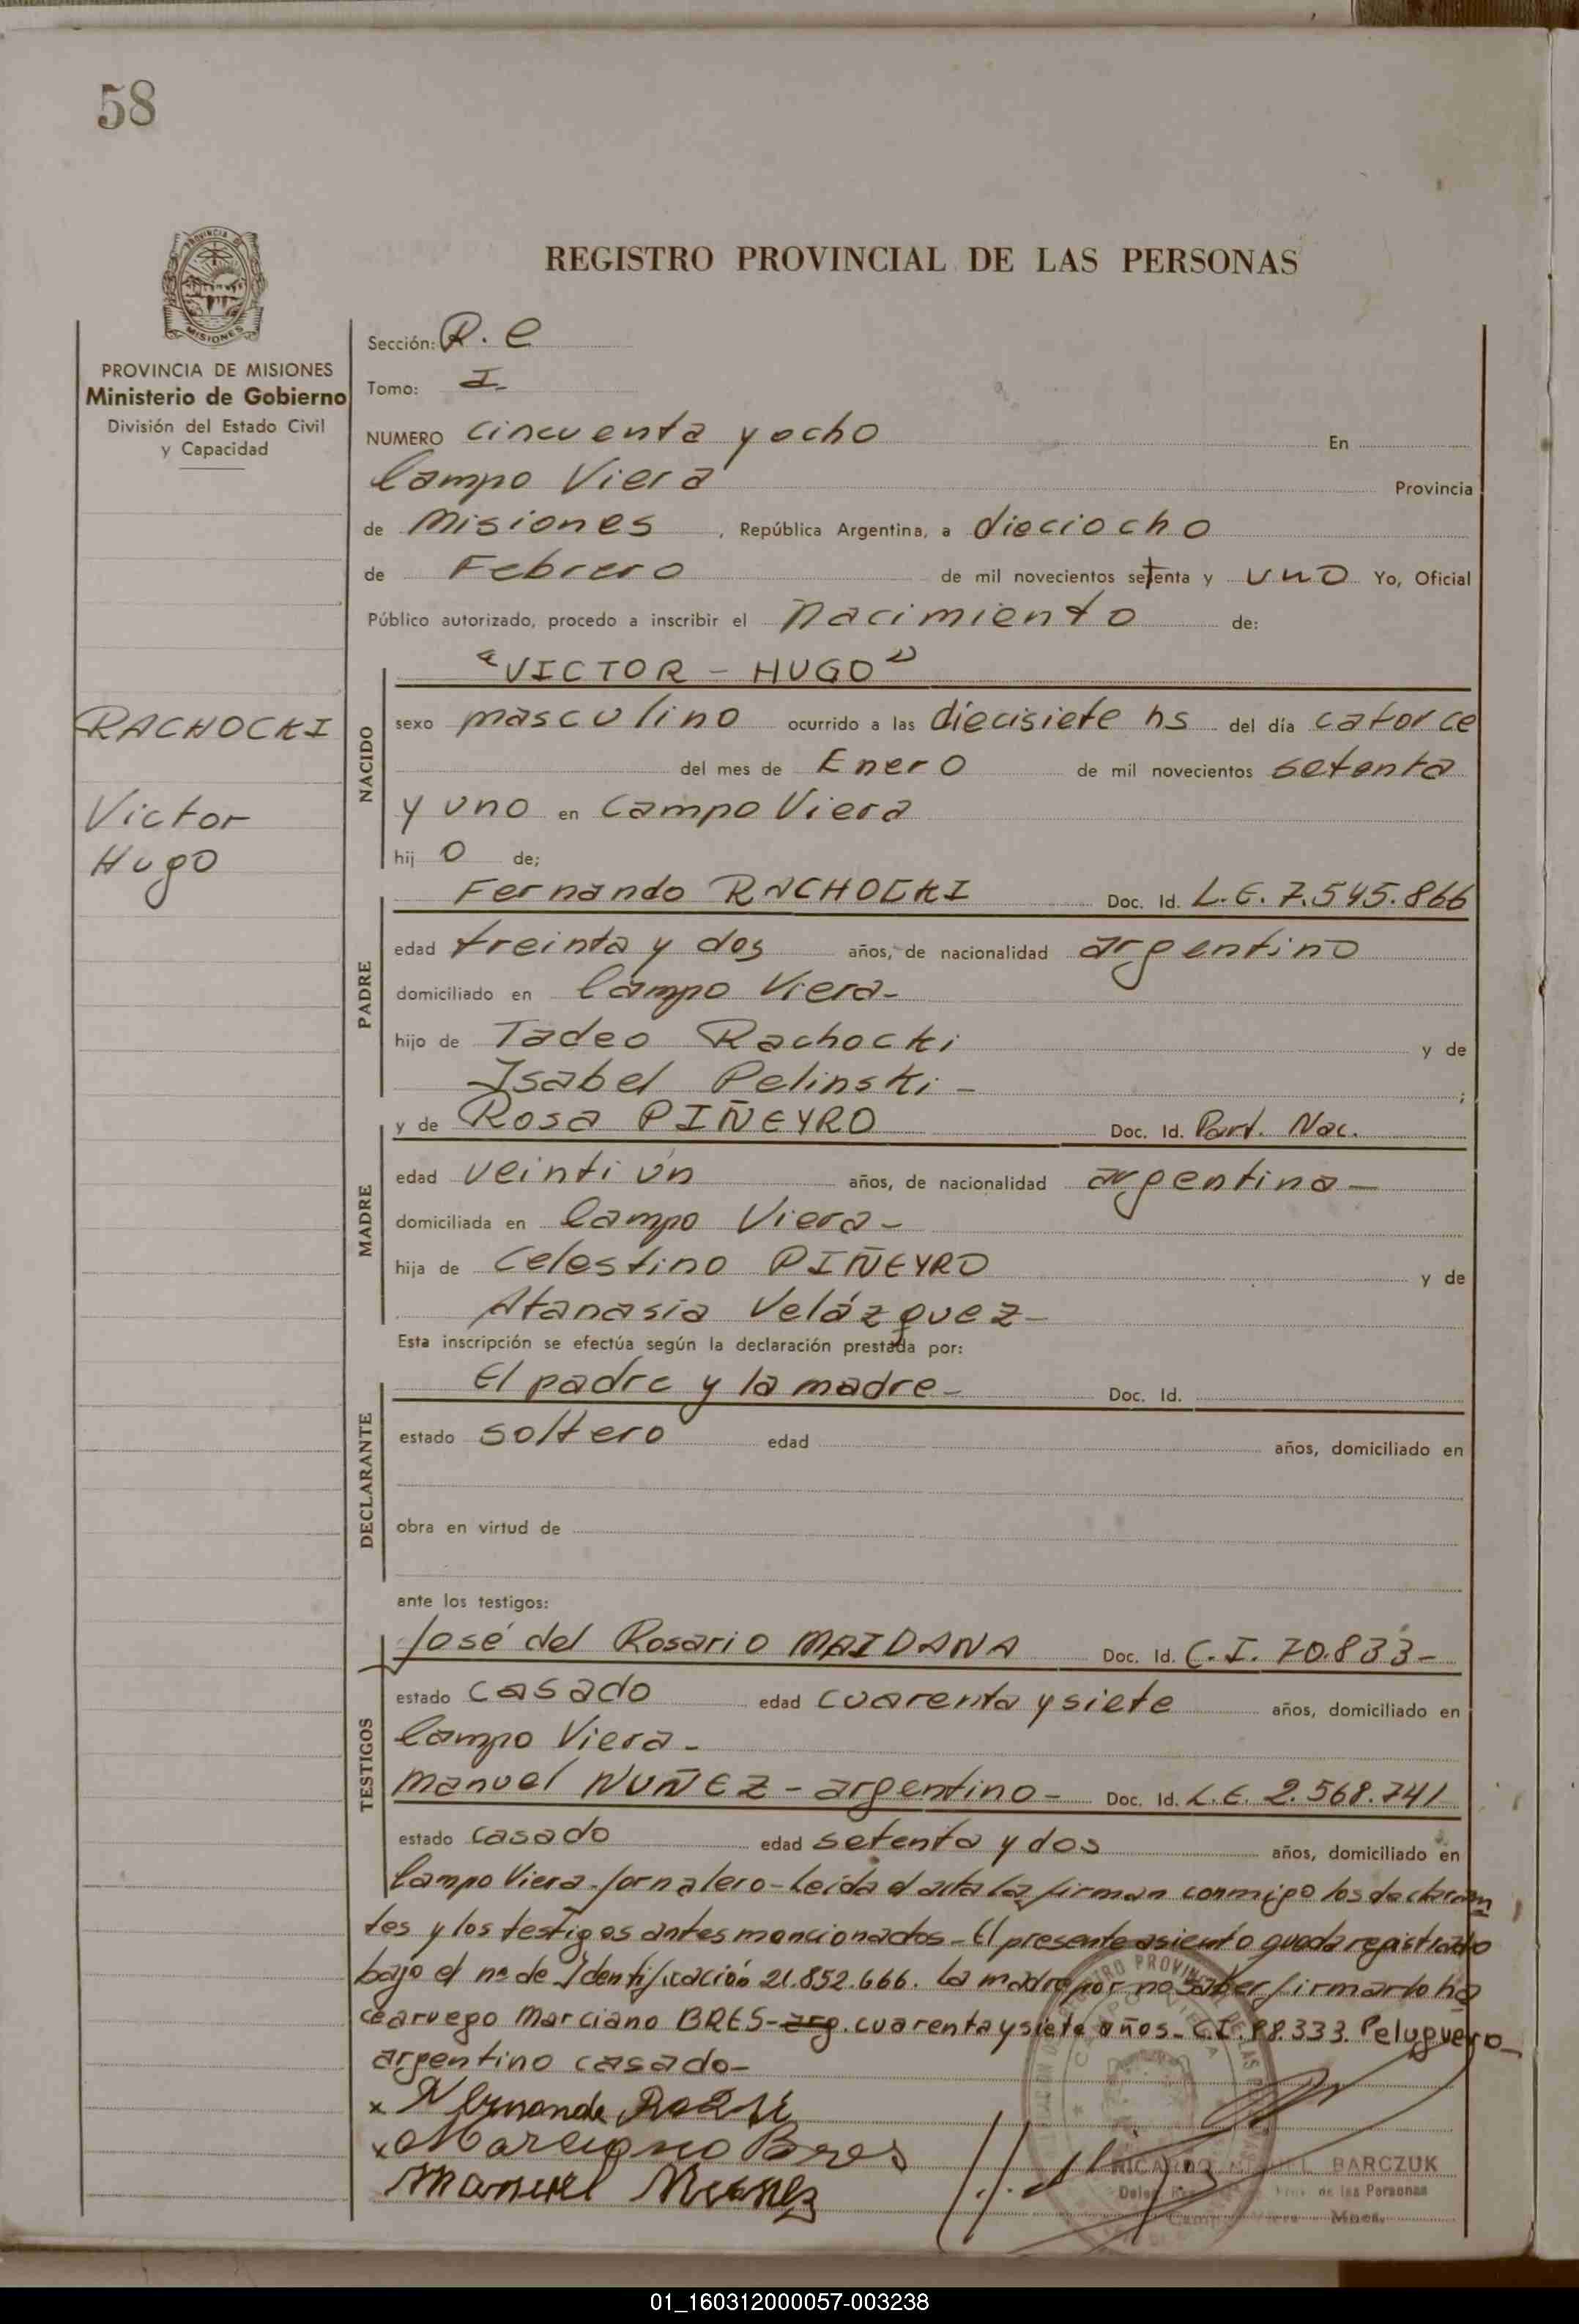 58
PROVINCIA DE
MISIONES
REGISTRO PROVINCIAL DE LAS PERSONAS
PROVINCIA DE MISIONES
Ministerio de Gobierno
División del Estado Civil
y Capacidad
RACHOCKI
Victor
Hugo
Sección: R. C
Tomo: I-
NUMERO cincuenta y ocho En
Campo Viera Provincia
de Misiones, República Argentina, a dieciocho
de Febrero de mil novecientos setenta y uno Yo, Oficial
Público autorizado, procedo a inscribir el nacimiento de:
"VICTOR - HUGO"
NACIDO
sexo masculino ocurrido a las diecisiete hs del día catorce
del mes de Enero de mil novecientos setenta
y uno en Campo Viera
hij o de;
Fernando RACHOCKI Doc. Id. L.E. 7.545.866
PADRE
edad treinta y dos años, de nacionalidad argentino
domiciliado en Campo Viera-
hijo de Tadeo Rachocki y de
Isabel Pelinski - ;
y de Rosa PIÑEYRO Doc. Id. Part. Nac.
MADRE
edad veintiún años, de nacionalidad argentina-
domiciliada en Campo Viera-
hija de Celestino PIÑEYRO y de
Atanasia Velázquez-
Esta inscripción se efectúa según la declaración prestada por:
El padre y la madre- Doc. Id.
DECLARANTE
estado soltero edad años, domiciliado en
obra en virtud de
ante los testigos:
José del Rosario MAIDANA Doc. Id. C.I. 70.833-
TESTIGOS
estado casado edad cuarenta y siete años, domiciliado en
Campo Viera-
Manuel NUÑEZ - argentino- Doc. Id. L.E. 2.568.741
estado casado edad setenta y dos años, domiciliado en
Campo Viera-Jornalero-Leída el acta la firman conmigo los declaran
tes y los testigos antes mencionados-El presente asiento queda registrado
bajo el nº de Identificación 21.852.666. La madre por no saber firmar lo ha
ce a ruego Marciano BRES-arg. cuarenta y siete años-C.I. 88.333. Peluquero-
argentino casado-
x Fernando
x Marciano Bres
Manuel Nuñez
RICARDO BARCZUK
de las Personas
Campo Viera - Mnes.
01_160312000057-003238